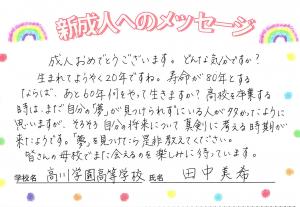 新成人へのメッセージ
成人おめでとうございます。どんな気分ですか？
生まれてようやく20年ですね。寿命が80年とする
ならば、あと60年何をやって生きますか？高校を卒業する
時は、まだ自分の「夢」が見つけられずにいる人が多かったように
思いますが、そろそろ自分の将来について真剣に考える時期が
来たようです。「夢」を見つけたら是非教えてください。
皆さんの母校でまた会えるのを楽しみに待っています。
学校名 高川学園高等学校 氏名 田中美希